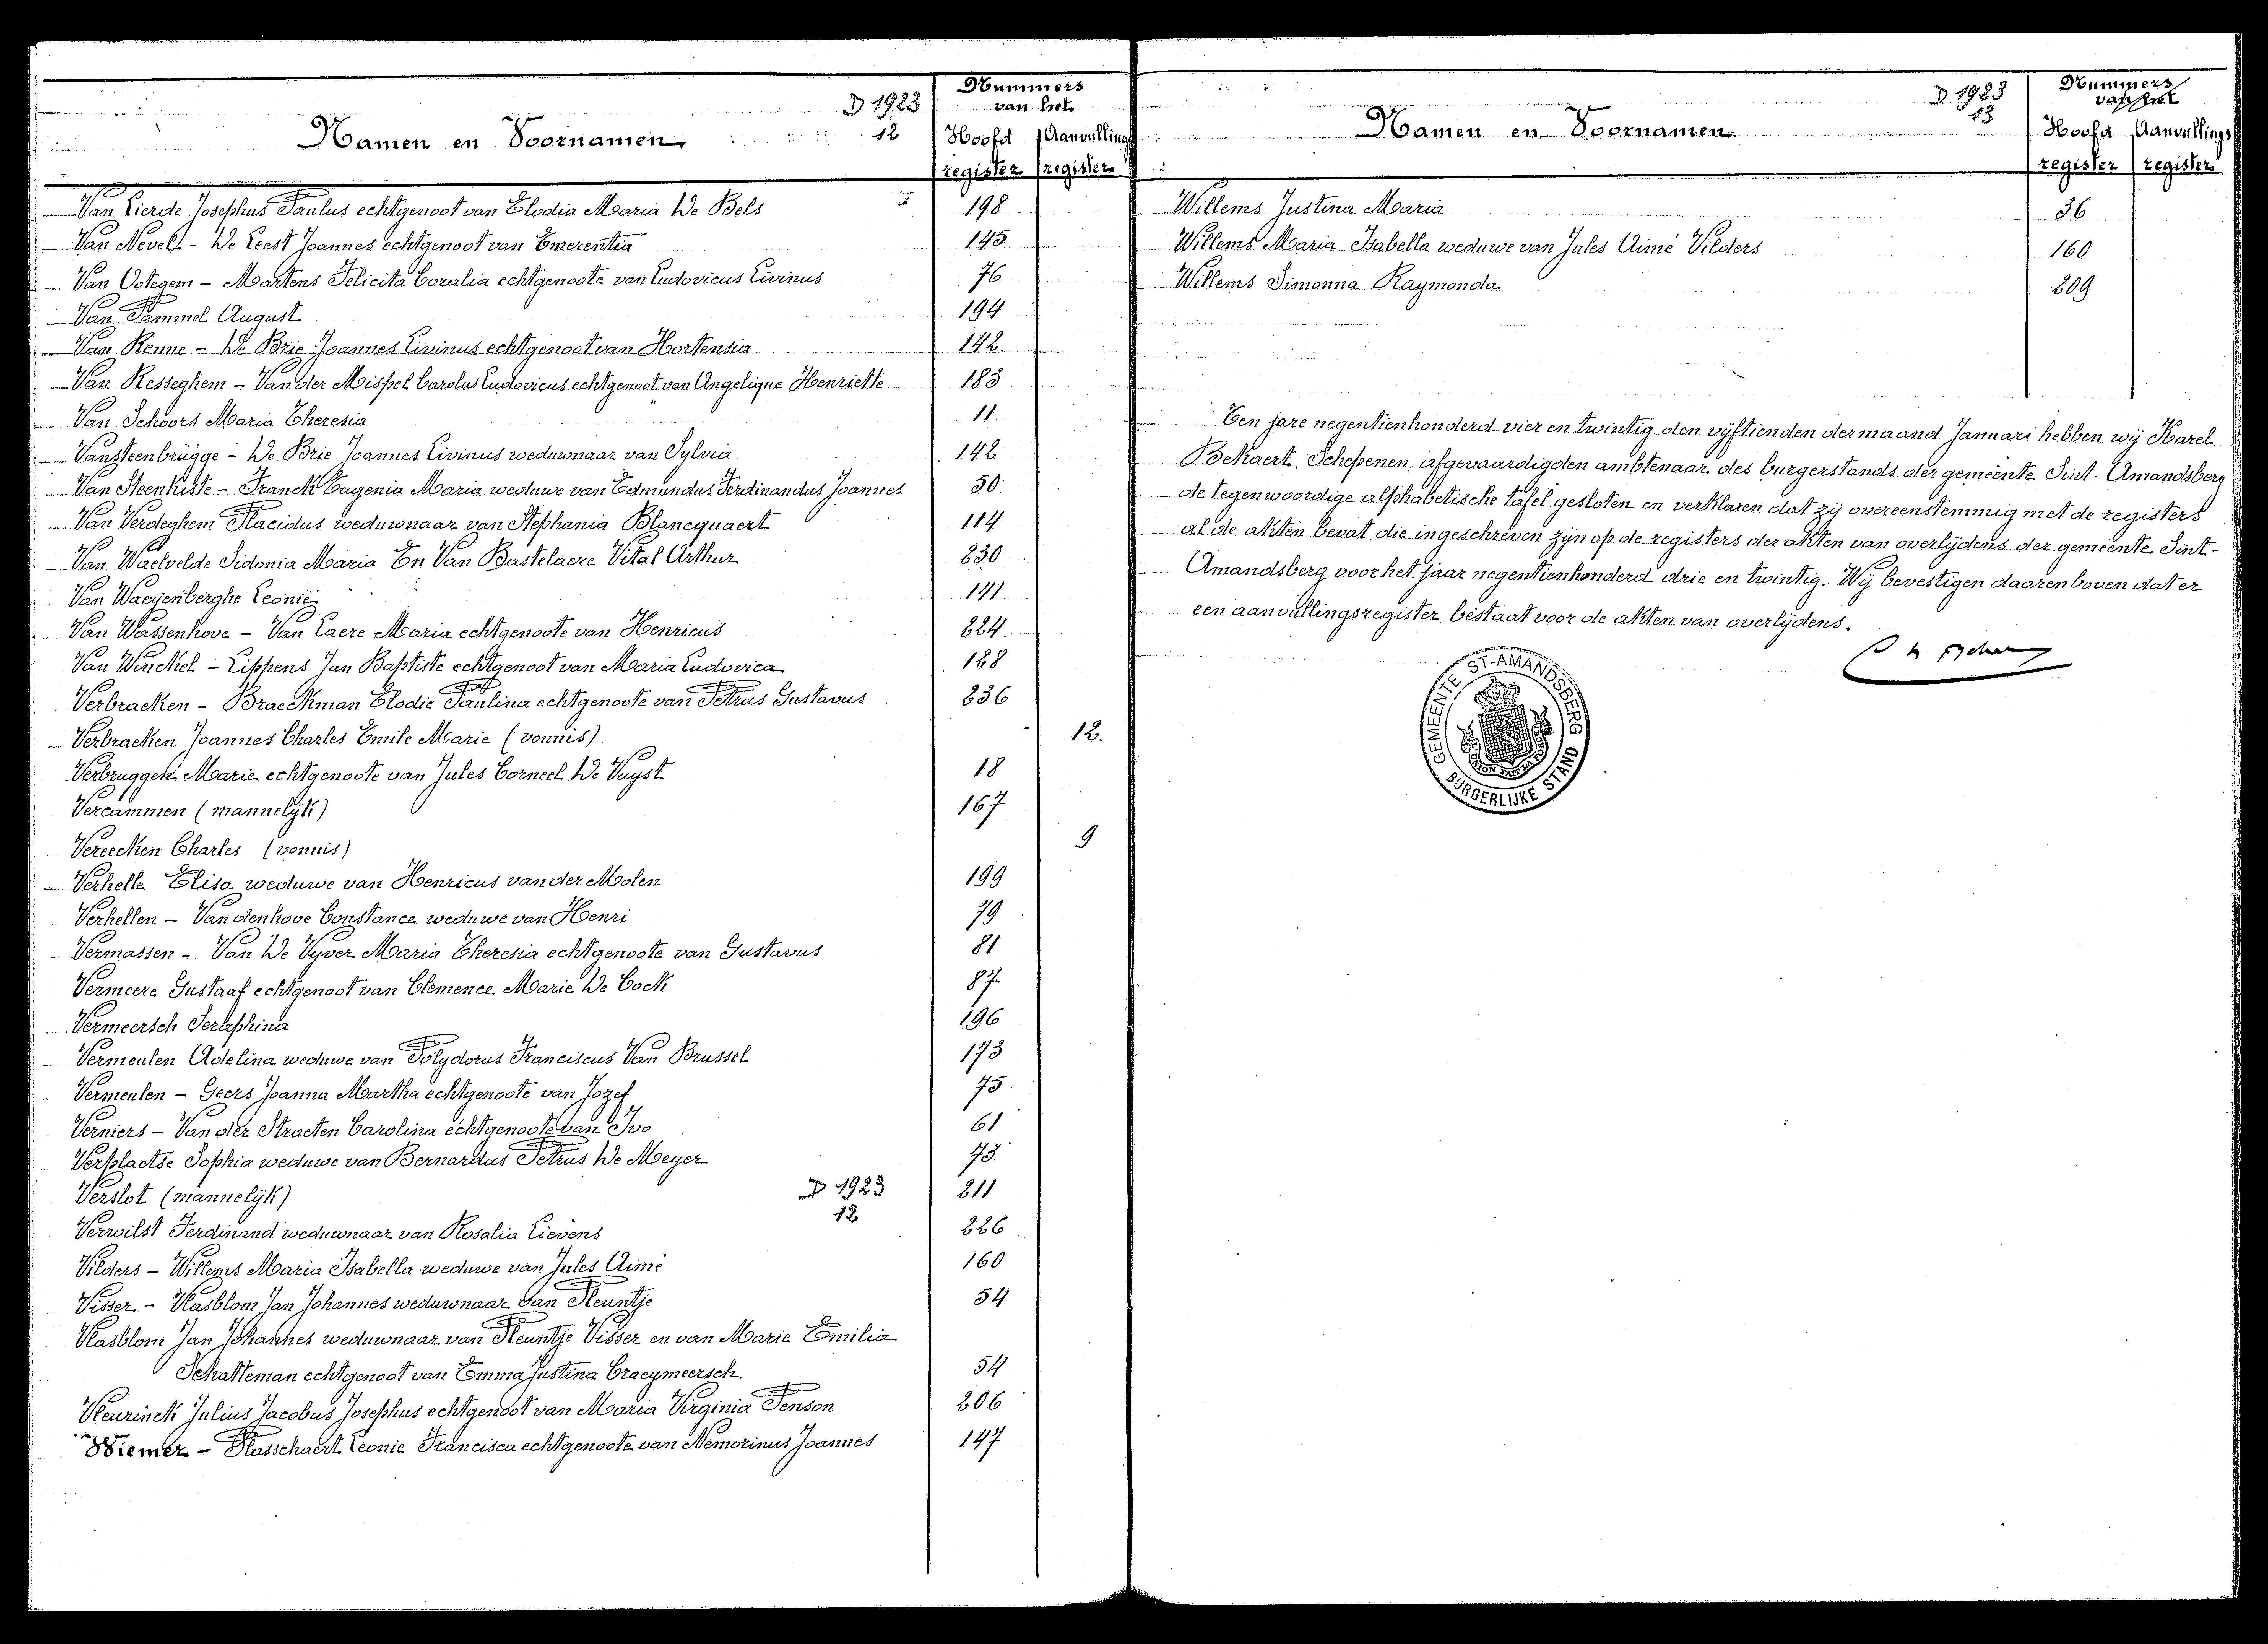 D 1923
12
Nummers
van het
Namen en Voornamen
Hoofd Aanvullings
register register
Van Lierde Josephus Paulus echtgenoot van Elodia Maria De Bels 198
Van Nevel - De Leest Joannes echtgenoot van Emerentia 145
Van Ootegem - Martens Felicita Coralia echtgenoote van Ludovicus Livinus 76
Van Pammel August 194
Van Renne - De Brie Joannes Livinus echtgenoot van Hortensia 142
Van Resseghem - Van der Mispel Carolus Ludovicus echtgenoot van Angelique Henriette 183
Van Schoors Maria Theresia 11
Vansteenbrugge - De Brie Joannes Livinus weduwnaar van Sylvia 142
Van Steenkiste - Franck Eugenia Maria weduwe van Edmundus Ferdinandus Joannes 50
Van Verdeghem Placidus weduwnaar van Stephania Blancquaert 114
Van Waelvelde Sidonia Maria En Van Bastelaere Vital Arthur 230
Van Waeyenberghe Leonie 141
Van Wassenhove - Van Laere Maria echtgenoote van Henricus 224
Van Winckel - Lippens Jan Baptiste echtgenoot van Maria Ludovica 128
Verbracken - Braeckman Elodie Paulina echtgenoote van Petrus Gustavus 236
Verbracken Joannes Charles Emile Marie (vonnis) 12.
Verbruggen Marie echtgenoote van Jules Corneel De Vuyst 18
Vercammen (mannelijk) 167
Vereecken Charles (vonnis) 9
Verhelle Elisa weduwe van Henricus van der Molen 199
Verhellen - Vandenhove Constance weduwe van Henri 79
Vermassen - Van De Vyver Maria Theresia echtgenoote van Gustavus 81
Vermeere Gustaaf echtgenoot van Clemence Marie De Cock 87
Vermeersch Seraphina 196
Vermeulen Adelina weduwe van Polydorus Franciscus Van Brussel 173
Vermeulen - Geers Joanna Martha echtgenoote van Jozef 75
Verniers - Van der Straeten Carolina echtgenoote van Ivo 61
Verplaetse Sophia weduwe van Bernardus Petrus De Meyer 73
Verslot (mannelijk) D 1923 211
12
Verwilst Ferdinand weduwnaar van Rosalia Lievens 226
Vilders - Willems Maria Isabella weduwe van Jules Aimé 160
Visser - Vlasblom Jan Johannes weduwnaar van Pleuntje 54
Vlasblom Jan Johannes weduwnaar van Pleuntje Visser en van Marie Emilia
Schatteman echtgenoot van Emma Justina Craeymeersch 54
Vleurinck Julius Jacobus Josephus echtgenoot van Maria Virginia Penson 206
Wiemer - Plasschaert Leonie Francisca echtgenoote van Nemorinus Joannes 147
D 1923
13
Nummers
van het
Namen en Voornamen
Hoofd Aanvullings
register register
Willems Justina Maria 36
Willems Maria Isabella weduwe van Jules Aimé Vilders 160
Willems Simonna Raymonda 209
Ten jare negentienhonderd vier en twintig den vijftienden der maand Januari hebben wij Karel
Bekaert, Schepenen, afgevaardigden ambtenaar des burgerstands der gemeente Sint-Amandsberg
de tegenwoordige alphabetische tafel gesloten en verklaren dat zij overeenstemmig met de registers
al de akten bevat die ingeschreven zijn op de registers der akten van overlijdens der gemeente Sint-
Amandsberg voor het jaar negentienhonderd drie en twintig. Wij bevestigen daarenboven dat er
een aanvullingsregister bestaat voor de akten van overlijdens.
GEMEENTE ST-AMANDSBERG
BURGERLIJKE STAND